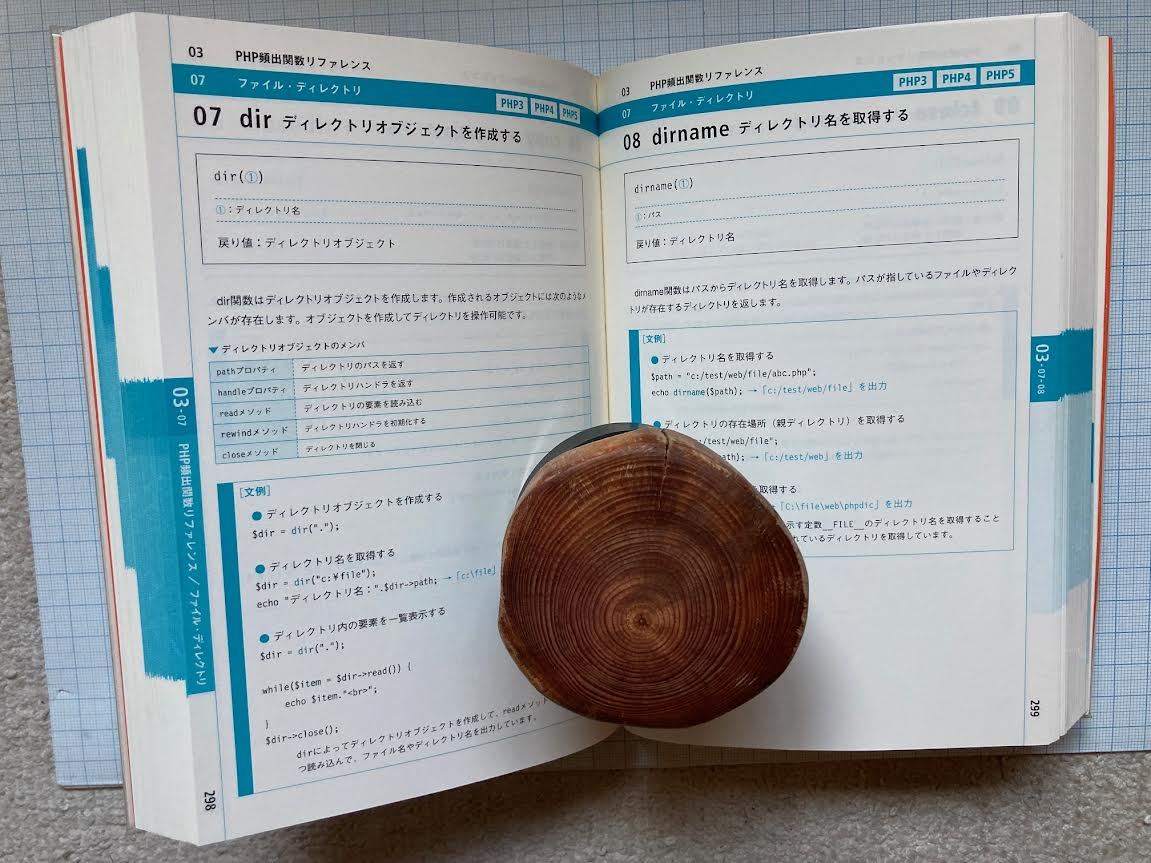 03 PHP頻出関数リファレンス
07 ファイル・ディレクトリ
PHP3 PHP4 PHP5
07 dir ディレクトリオブジェクトを作成する
dir(①)
①：ディレクトリ名
戻り値：ディレクトリオブジェクト
dir関数はディレクトリオブジェクトを作成します。作成されるオブジェクトには次のようなメ
ンバが存在します。オブジェクトを作成してディレクトリを操作可能です。
▼ディレクトリオブジェクトのメンバ
pathプロパティ ディレクトリのパスを返す
handleプロパティ ディレクトリハンドラを返す
readメソッド ディレクトリの要素を読み込む
rewindメソッド ディレクトリハンドラを初期化する
closeメソッド ディレクトリを閉じる
[文例]
●ディレクトリオブジェクトを作成する
$dir = dir(".");
●ディレクトリ名を取得する
$dir = dir("c:¥file");
echo "ディレクトリ名：".$dir->path; →「c:\file」
●ディレクトリ内の要素を一覧表示する
$dir = dir(".");
while($item = $dir->read()) {
echo $item."<br>";
}
$dir->close();
dirによってディレクトリオブジェクトを作成して、readメソッド
つ読み込んで、ファイル名やディレクトリ名を出力しています。
03-07 PHP頻出関数リファレンス／ファイル・ディレクトリ
298
03 PHP頻出関数リファレンス
07 ファイル・ディレクトリ
PHP3 PHP4 PHP5
08 dirname ディレクトリ名を取得する
dirname(①)
①：パス
戻り値：ディレクトリ名
dirname関数はパスからディレクトリ名を取得します。パスが指しているファイルやディレク
トリが存在するディレクトリを返します。
[文例]
●ディレクトリ名を取得する
$path = "c:/test/web/file/abc.php";
echo dirname($path); →「c:/test/web/file」を出力
●ディレクトリの存在場所（親ディレクトリ）を取得する
:/test/web/file";
path); →「c:/test/web」を出力
取得する
→「C:\file\web\phpdic」を出力
示す定数__FILE__のディレクトリ名を取得すること
れているディレクトリを取得しています。
03-07-08
299